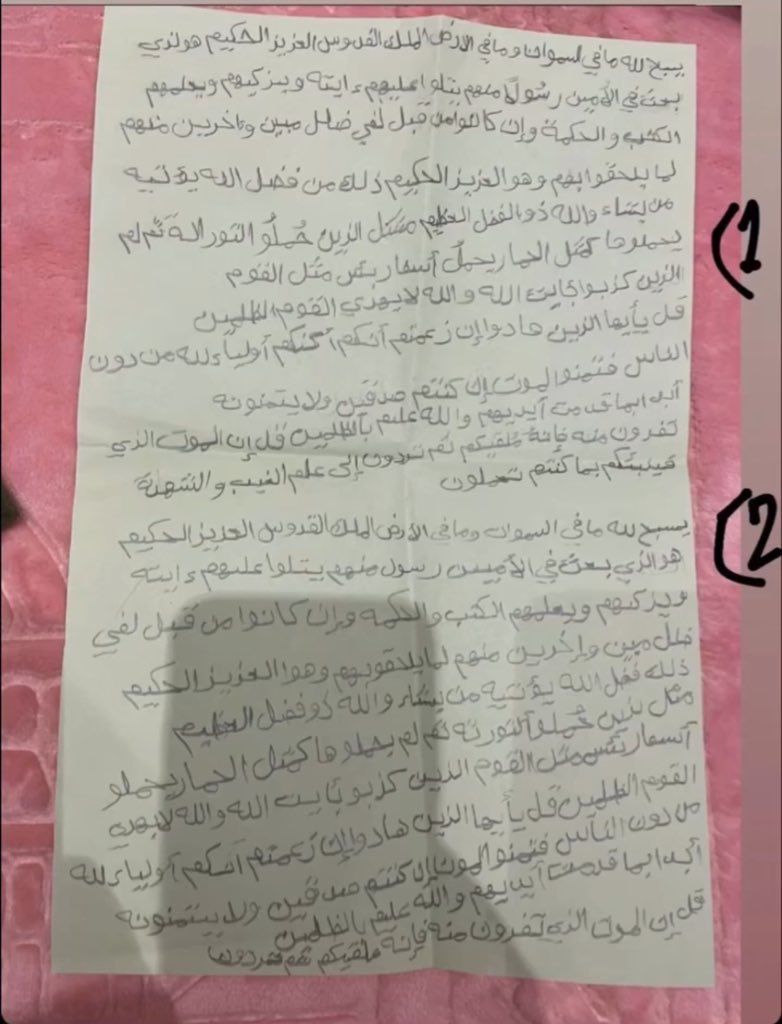 يسبح لله مافي لسموات ومافي الأرض الملك القدوس العزيز الحكيم هولذي
بعث في الأمين رسولا منهم يتلوا عليهم ءايته ويزكيهم ويعلمهم
الكتب والحكمة وإن كانوا من قبل لفي ضلل مبين وءاخرين منهم
لما يلحقوا بهم وهو العزيز الحكيم ذلك من فضل الله يؤتيه
من يشاء والله ذو الفضل العظيم مثل الذين حُملُو التوراة ثم لم
يحملوها كمثل الحمار يحمل أسفار بئس مثل القوم
الذين كذبوا بايت الله والله لايهذي القوم الظلمين
قل يأيها الذين هادوا إن زعمتم أنكم أولياء لله من دون
الناس فتمنوا لموت إن كنتم صدقين ولا يتمنونه
أبدا بما قدمت أيديهم والله عليم بالظلمين قل إن الموت الذي
تفرون منه فإنه ملقيكم ثم تردون إلى علم الغيب والشهدة
فينبئكم بما كنتم تعملون
(1
يسبح لله مافي السموات ومافي الأرض الملك القدوس العزيز الحكيم
هو الذي بعث في الأمين رسول منهم يتلوا عليهم ءايته
ويزكيهم ويعلمهم الكتب والحكمه وإن كانوا من قبل لفي
ضلل مبين وإخرين منهم لما يلحقوبهم وهوا العزيز الحكيم
ذلك فضل الله يؤتيه من يشاء والله ذو فضل العظيم
مثل حُملو التورته ثم لم يحملوها كمثل الحمار يحملو
أسفار بئس مثل القوم الذين كذبو بايت الله والله لايهدي
القوم الظلمين قل يأيها الذين هادوا إن زعمتم أنكم أولياء لله
من دون الناس فتمنوا الموت إن كنتم صدقين ولا يتمنونه
أبدا بما قدمت أيديهم والله عليم بالظلمين
قل إن الموت الذي تفرون منه فإنه ملقيكم ثم تردون
(2